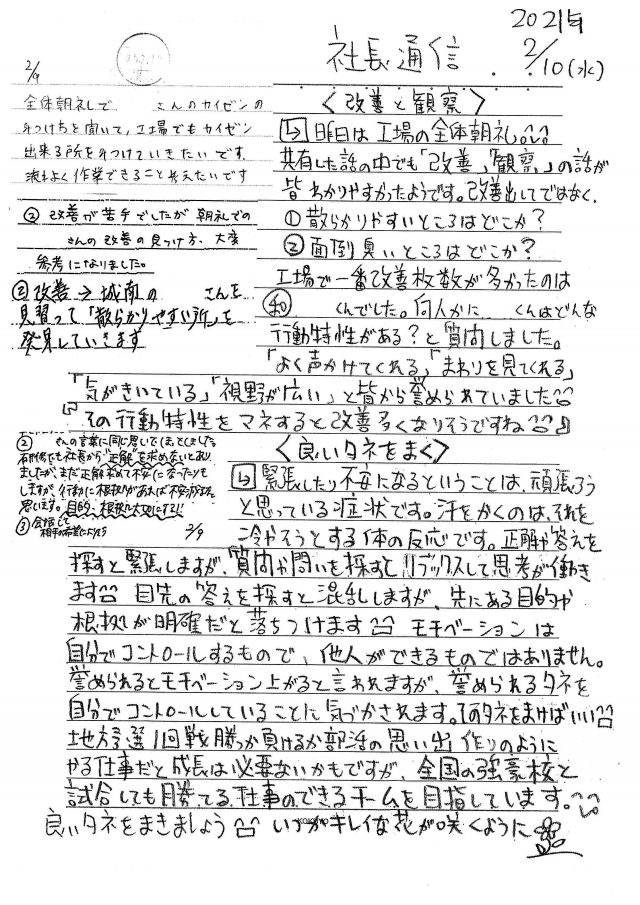 2021年
社長通信 2/10(水)
2/9
全体朝礼で さんのカイゼンの
見つけ方を聞いて、工場でもカイゼン
出来る所を見つけていきたいです。
流れよく作業できること考えたいです
② 改善が苦手でしたが朝礼での
さんの改善の見つけ方、大変
参考になりました。
③改善→城南の さんを
見習って「散らかりやすい所」を
発見していきます
〈改善と観察〉
昨日は工場の全体朝礼。
共有した話の中でも「改善」「観察」の話が
皆わかりやすかったようです。改善出してではなく、
①散らかりやすいところはどこか?
②面倒臭いところはどこか?
工場で一番改善枚数が多かったのは
和 くんでした。何人かに くんはどんな
行動特性がある?と質問しました。
「よく声かけてくれる」「まわりを見てくれる」
「気がきいている」「視野が広い」と皆から誉められていました
その行動特性をマネすると改善多くなりそうですね
② さんの言葉に同じ思いで
研修でも社長から"正解"を求めないとあり
ましたが、まだ正解求めて不安になったりも
しますが、行動に根拠があれば不安が
思います。目的、根拠大切にする!
③会話して
2/9
〈良いタネをまく〉
緊張したり不安になるということは、頑張ろう
と思っている症状です。汗をかくのは、それを
冷やそうとする体の反応です。正解や答えを
探すと緊張しますが、質問や問いを探すとリラックスして思考が働き
ます 目先の答えを探すと混乱しますが、先にある目的や
根拠が明確だと落ちつけます モチベーションは
自分でコントロールするもので、他人ができるものではありません。
誉められるとモチベーション上がると言われますが、誉められるタネを
自分でコントロールしていることに気づかされます。そのタネをまけばいい
地方予選1回戦勝つか負けるか部活の思い出作りのように
やる仕事だと成長は必要ないかもですが、全国の強豪校と
試合しても勝てる仕事のできるチームを目指しています。
良いタネをまきましょう いつかキレイな花が咲くように